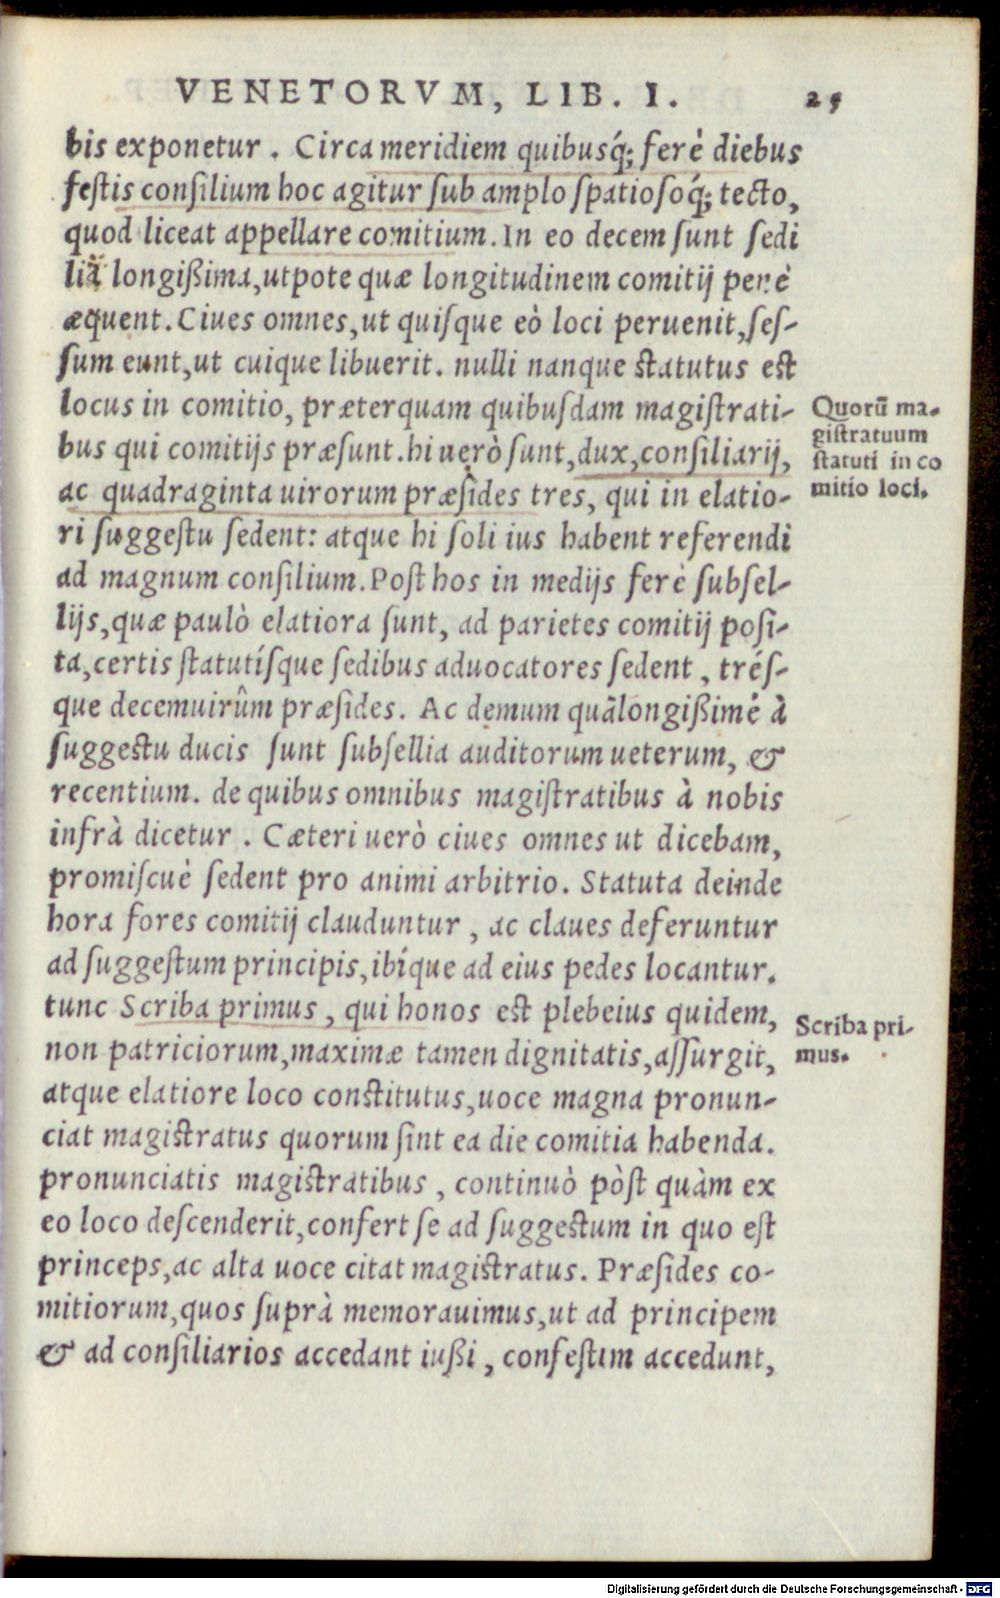 VENETORVM, LIB. I. 25
bis exponetur. Circa meridiem quibusq́; ferè diebus
festis consilium hoc agitur sub amplo spatiosoq́; tecto,
quod liceat appellare comitium. In eo decem sunt sedi
lia longißima, utpote quæ longitudinem comitij penè
æquent. Ciues omnes, ut quisque eò loci peruenit, ses-
sum eunt, ut cuique libuerit. nulli nanque statutus est
locus in comitio, præterquam quibusdam magistrati-
bus qui comitijs præsunt. hi uerò sunt, dux, consiliarij,
ac quadraginta uirorum præsides tres, qui in elatio-
ri suggestu sedent: atque hi soli ius habent referendi
ad magnum consilium. Post hos in medijs ferè subsel-
lijs, quæ paulò elatiora sunt, ad parietes comitij posi-
ta, certis statutísque sedibus aduocatores sedent, trés-
que decemuirûm præsides. Ac demum quãlongißimè à
suggestu ducis sunt subsellia auditorum ueterum, &
recentium. de quibus omnibus magistratibus à nobis
infrà dicetur. Cæteri uerò ciues omnes ut dicebam,
promiscuè sedent pro animi arbitrio. Statuta deinde
hora fores comitij clauduntur, ac claues deferuntur
ad suggestum principis, ibíque ad eius pedes locantur.
tunc Scriba primus, qui honos est plebeius quidem,
non patriciorum, maximæ tamen dignitatis, assurgit,
atque elatiore loco constitutus, uoce magna pronun-
ciat magistratus quorum sint ea die comitia habenda.
pronunciatis magistratibus, continuò pòst quàm ex
eo loco descenderit, confert se ad suggestum in quo est
princeps, ac alta uoce citat magistratus. Præsides co-
mitiorum, quos suprà memorauimus, ut ad principem
& ad consiliarios accedant iußi, confestim accedunt,
Quorũ ma-
gistratuum
statuti in co
mitio loci.
Scriba pri-
mus.
Digitalisierung gefördert durch die Deutsche Forschungsgemeinschaft - DFG